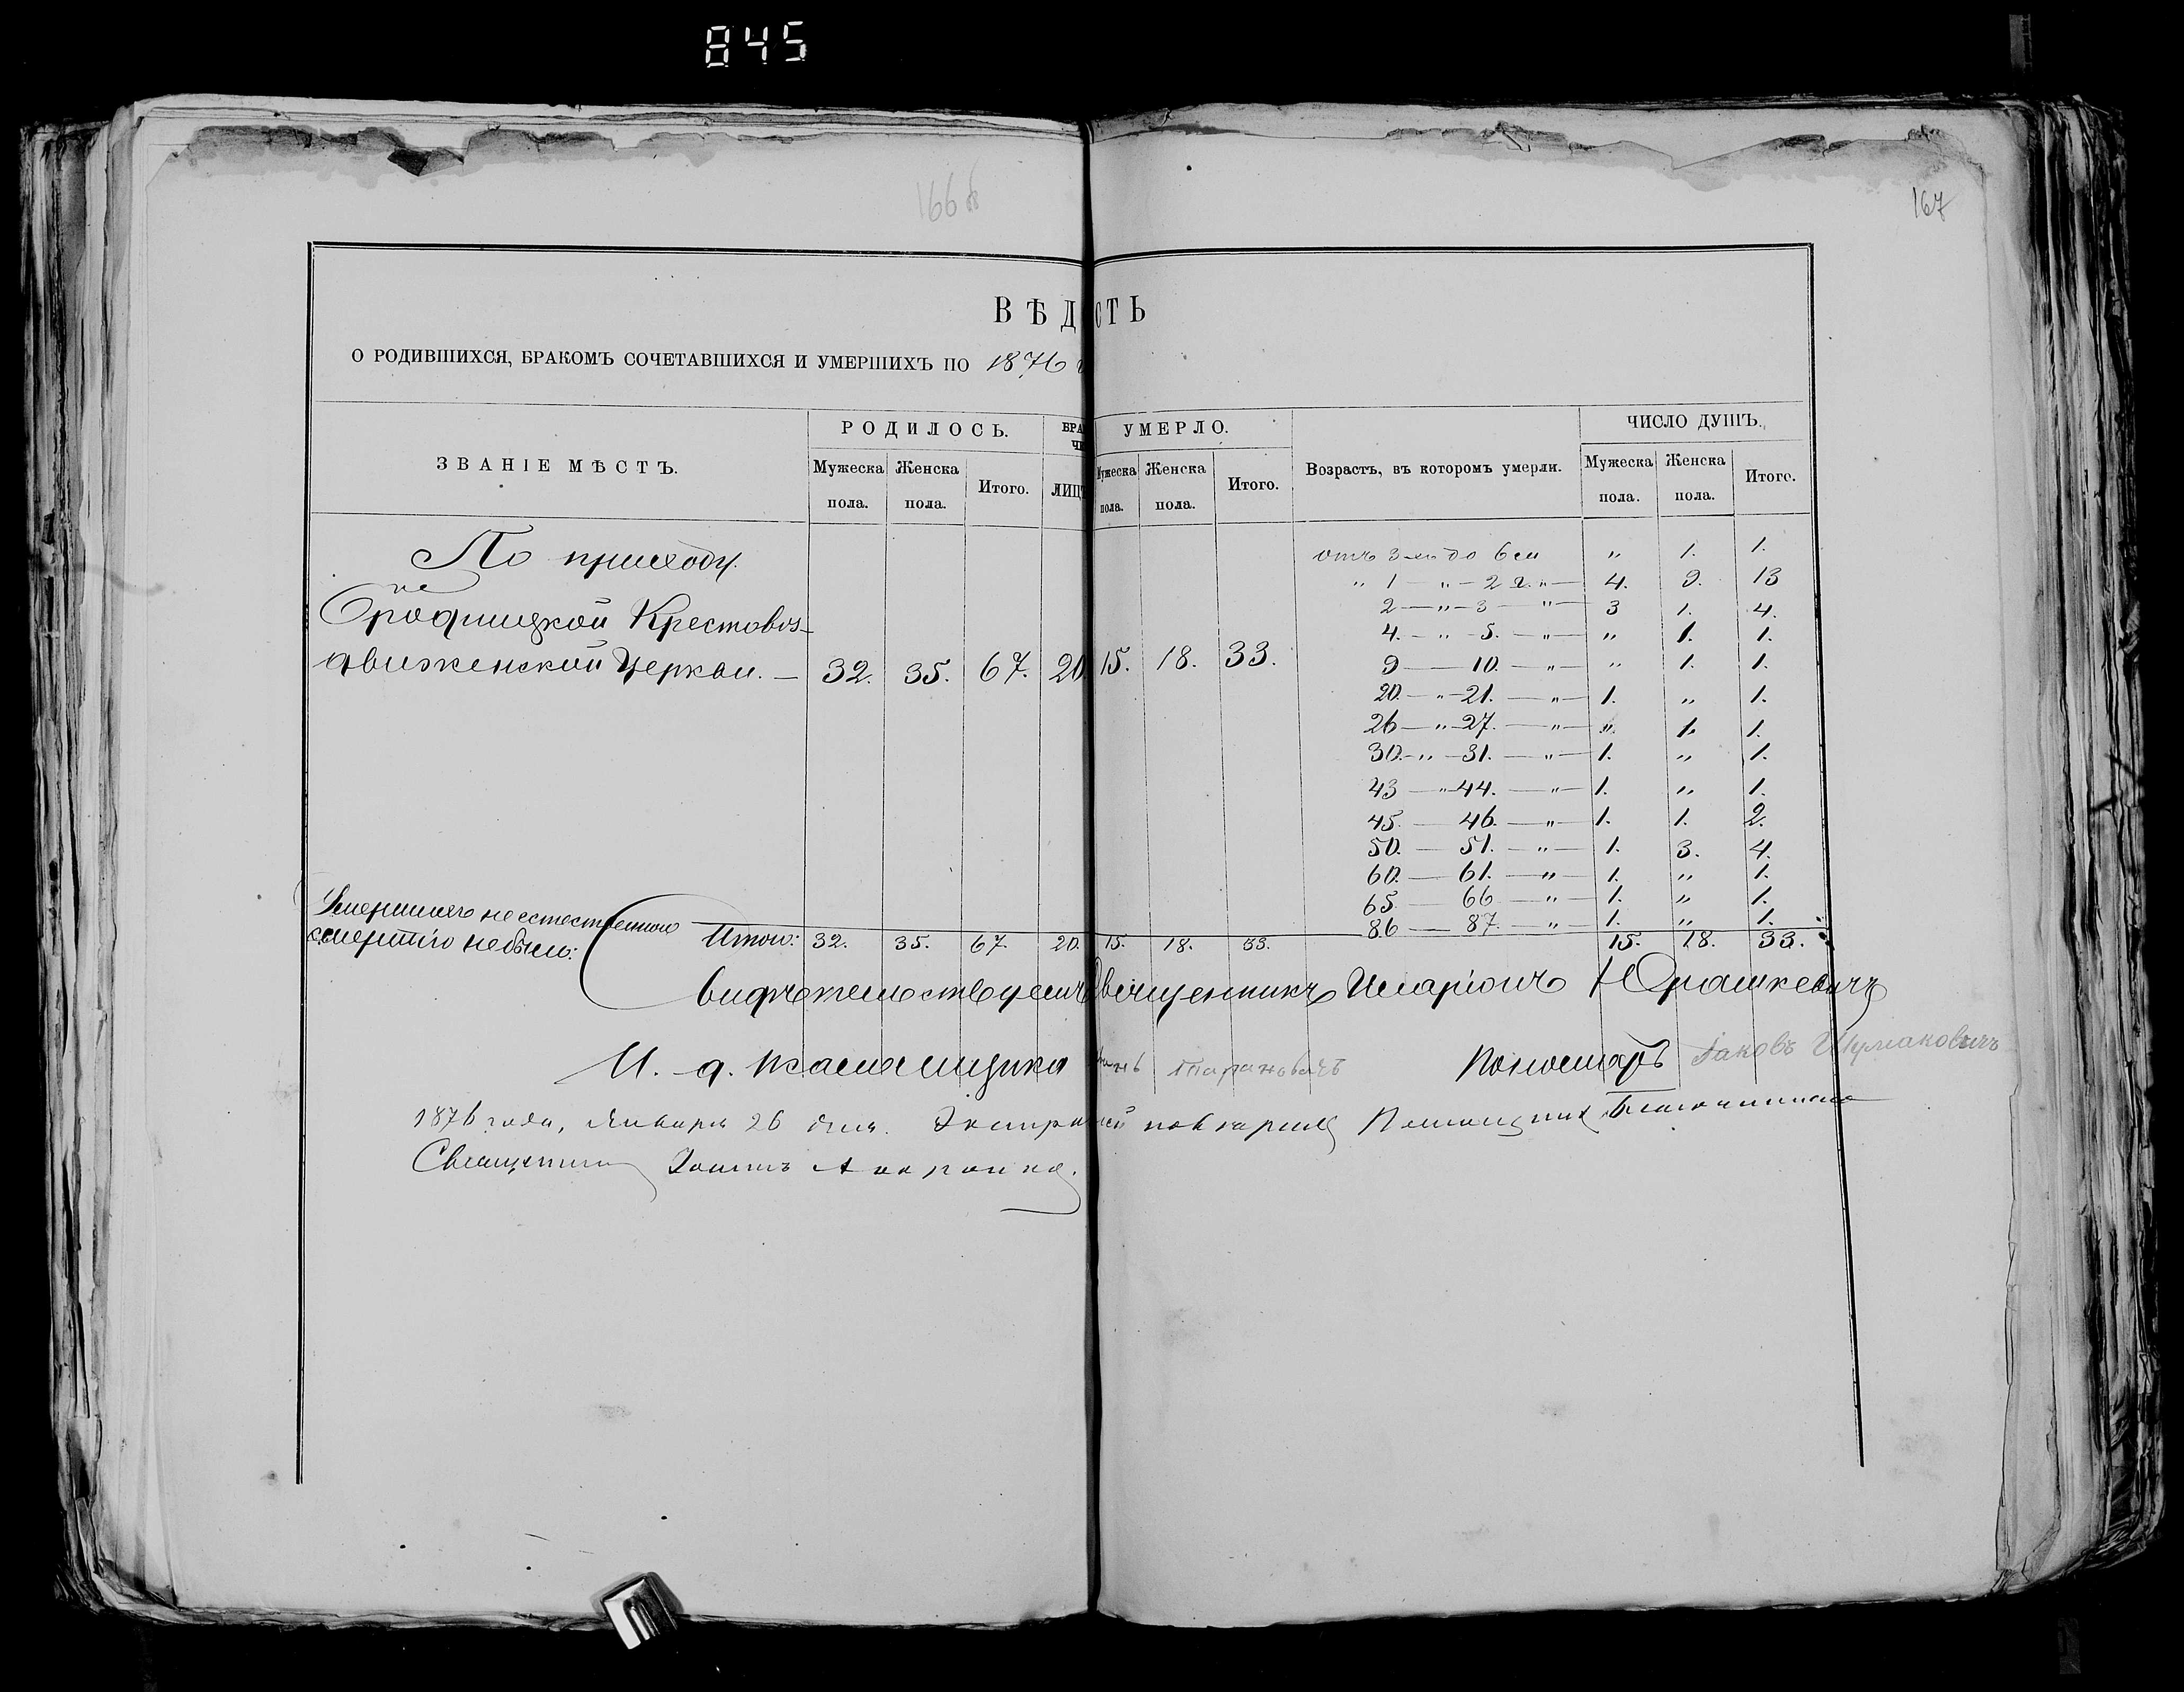 845
166 об
167
ВѢДСТЬ
О РОДИВШИХСЯ, БРАКОМЪ СОЧЕТАВШИХСЯ И УМЕРШИХЪ ПО 1876
ЗВАНІЕ МѢСТЪ. РОДИЛОСЬ. БРА УМЕРЛО. Возрастъ, въ которомъ умерли. ЧИСЛО ДУШЪ.
Мужеска пола. Женска пола. Итого. ЛИЦ Мужеска пола. Женска пола. Итого. Мужеска пола. Женска пола. Итого.
По приходу
Крестовоз-
движенской Церкви. — 32. 35. 67. 20 15. 18. 33.
отъ 3-хъ до 6 „ 1. 1.
„ 1 — „ — 2 „ — 4. 9. 13
2 — „ — 3 — „ — 3 1. 4.
4. — „ — 5. — „ — „ 1. 1.
9 — 10. — „ — „ 1. 1.
20. — „ — 21. — „ — 1. „ 1.
26 — „ — 27. — „ — „ 1. 1.
30. — „ — 31. — „ — 1. „ 1.
43 — „ — 44. — „ — 1. „ 1.
45. — 46. — „ — 1. 1. 2.
50. — 51. — „ — 1. 3. 4.
60. — 61. — „ — 1. „ 1.
65. — 66 — „ — 1. „ 1.
86 — 87. — „ — 1. „ 1.
Умершихъ неестественною
смертію небыло:
Итого: 32. 35. 67. 20. 15. 18. 33. 15. 18. 33.
Священникъ Иларіонъ Юрашкевичъ
И. д. псаломщика Тарановичъ Пономарь Іаковъ Шумаковичъ
1876 года, Января 26 дня. Помощникъ Благочиннаго
Священникъ Іоаннъ